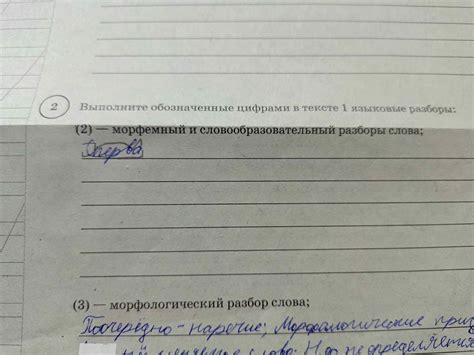 2 Выполните обозначенные цифрами в тексте 1 языковые разборы:
(2) — морфемный и словообразовательный разборы слова;
(3) — морфологический разбор слова;
Поочерёдно - наречие; Морфологические
слово: